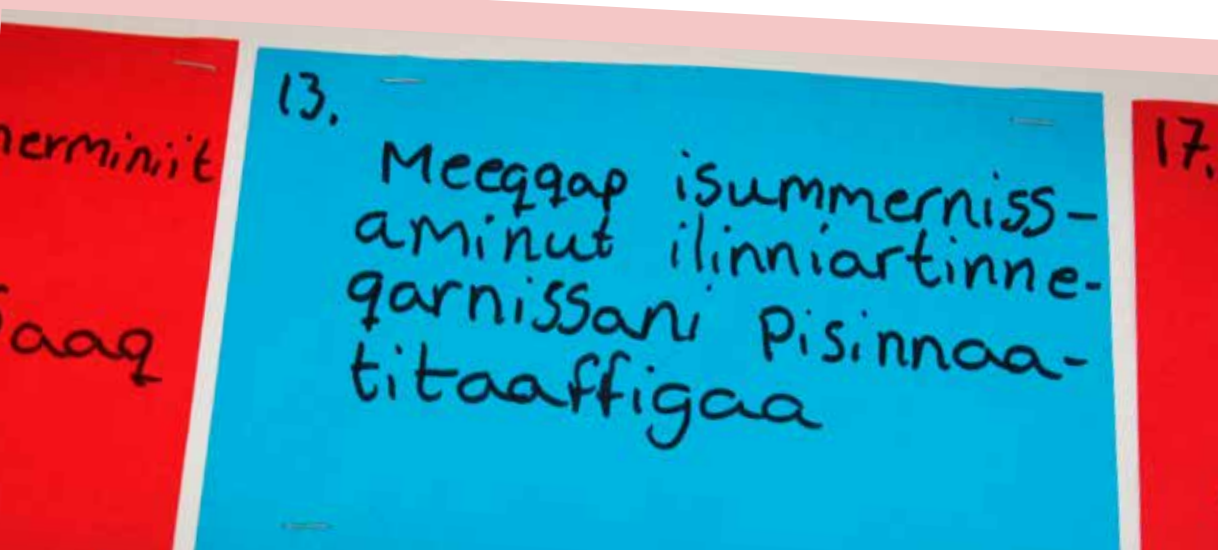 nerminiit
aaq
13.
Meeqqap isummerniss-
aminut ilinniartinne-
qarnissani pisinnaa-
titaaffigaa
17.